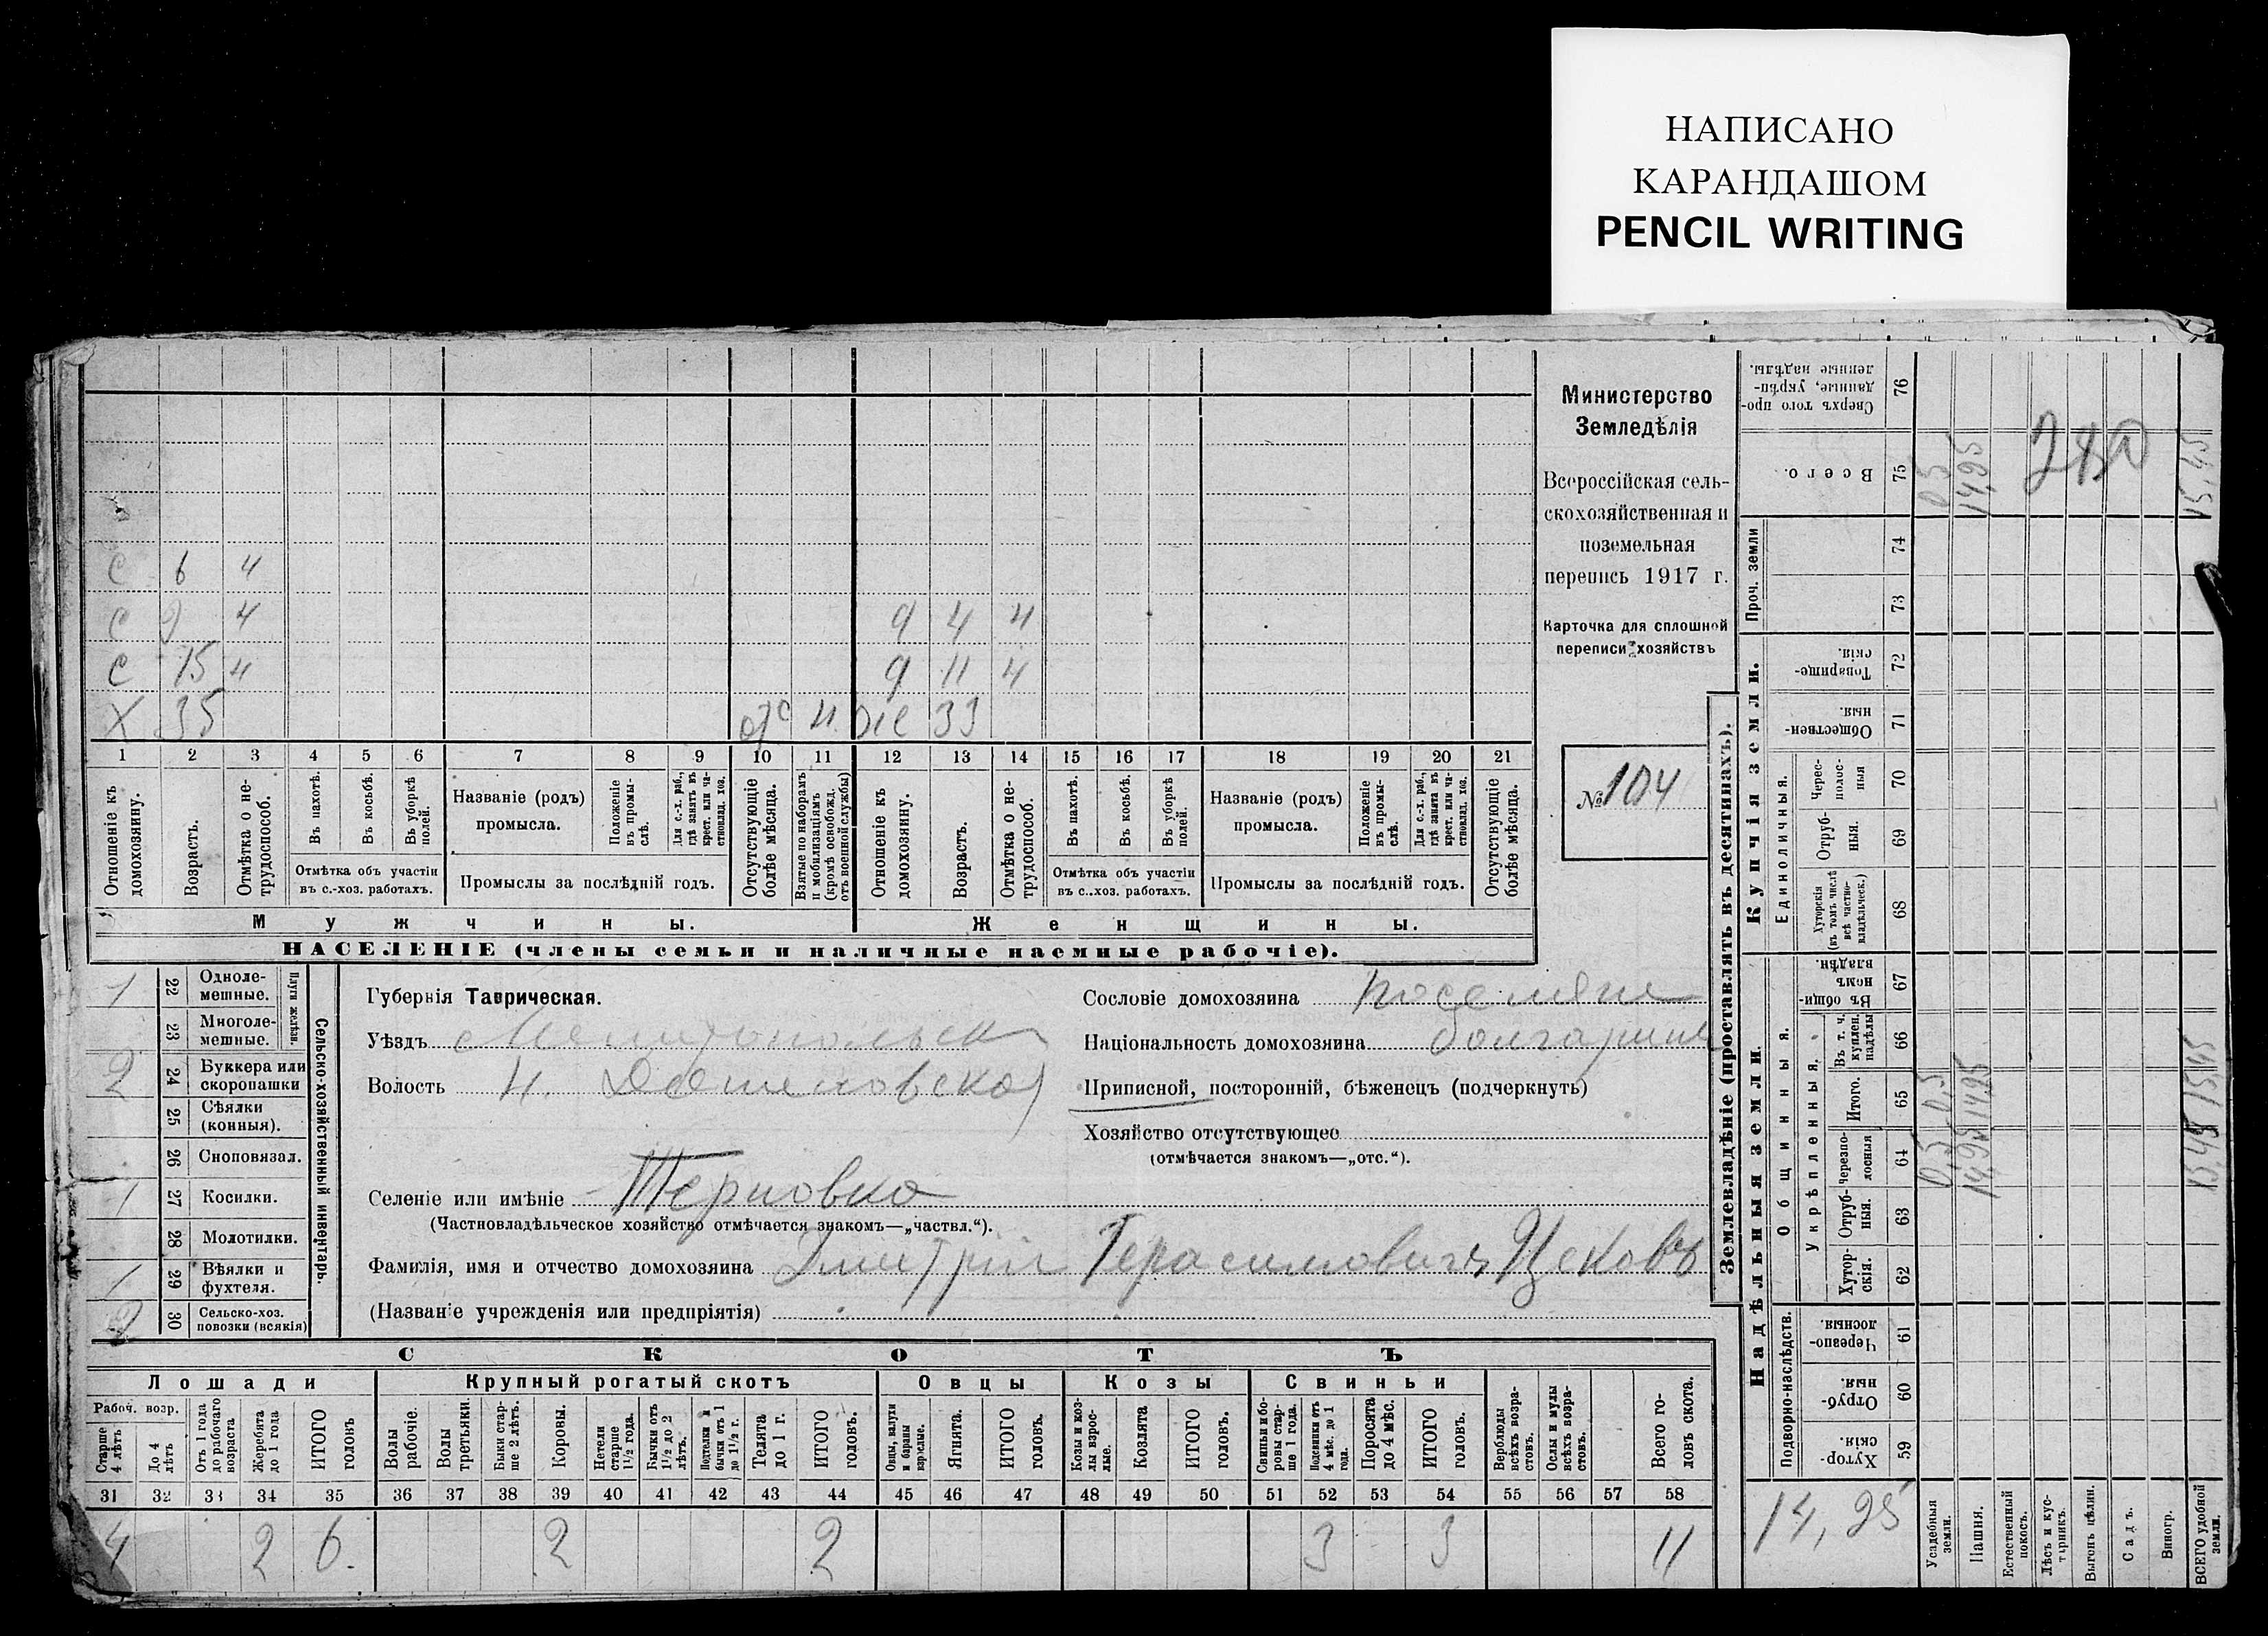 НАПИСАНО
КАРАНДАШОМ
PENCIL WRITING
Министерство
Земледѣлія
Всероссійская сель-
скохозяйственная и
поземельная
перепись 1917 г.
Карточка для сплошной
переписи хозяйствъ
№ 104
С 6 ч
С 9 ч д 4 ч
С 15 ч д 11 ч
Х 35 отс ч же 33
1 2 3 4 5 6 7 8 9 10 11 12 13 14 15 16 17 18 19 20 21
Отношеніе къ домохозяину.
Возрастъ.
Отмѣтка о не-трудоспособ.
Въ пахотѣ.
Въ косьбѣ.
Въ уборкѣ полей.
Отмѣтка объ участіи
въ с.-хоз. работахъ.
Названіе (родъ)
промысла.
Положеніе въ промы-слѣ.
Для с.-х. раб., гдѣ занятъ въ крест. или ча-стновлад. хоз.
Промыслы за послѣдній годъ.
Отсутствующіе болѣе мѣсяца.
Взятые по наборамъ и мобилизаціямъ (кромѣ освобожд. отъ военной службы)
Отношеніе къ домохозяину.
Возрастъ.
Отмѣтка о не-трудоспособ.
Въ пахотѣ.
Въ косьбѣ.
Въ уборкѣ полей.
Отмѣтка объ участіи
въ с..хоз. работахъ.
Названіе (родъ)
промысла.
Положеніе въ промы-слѣ.
Для с.-х. раб., гдѣ занята въ крест. или ча-стновлад. хоз.
Промыслы за послѣдній годъ.
Отсутствующіе болѣе мѣсяца.
Мужчины. Женщины.
НАСЕЛЕНІЕ (члены семьи и наличные наемные рабочіе).
Сельско-хозяйственный инвентарь.
Плуги желѣз.
1 22 Одноле-мешные.
23 Многоле-мешные.
2 24 Буккера или скоропашки
25 Сѣялки (конныя).
26 Сноповязал.
1 27 Косилки.
28 Молотилки.
1 29 Вѣялки и фухтеля.
2 30 Сельско-хоз. повозки (всякія)
Губернія Таврическая.
Уѣздъ Мелитопольск
Волость
Селеніе или имѣніе Терновка
(Частновладѣльческое хозяйство отмѣчается знакомъ—„частвл.“).
Фамилія, имя и отчество домохозяина Дмитрій Герасимовичъ Цековъ
(Названіе учрежденія или предпріятія)
Сословіе домохозяина поселяне
Національность домохозяина болгарине
Приписной, посторонній, бѣженецъ (подчеркнуть)
Хозяйство отсутствующее
(отмѣчается знакомъ—„отс.“).
СКОТЪ
Лошади Крупный рогатый скотъ Овцы Козы Свиньи
Рабоч. возр.
Старше 4 лѣтъ
До 4 лѣтъ
Отъ 1 года до рабочаго возраста
Жеребята до 1 года
ИТОГО головъ
Волы рабочіе.
Волы третьяки.
Быки стар-ше 2 лѣтъ.
Коровы.
Нетели старше 1½ года.
Бычки отъ 1½ до 2 лѣтъ.
Подтелки и бычки отъ 1 до 1½ г.
Телята до 1 г.
ИТОГО головъ.
Овцы, валухи и бараны взрослые.
Ягнята.
ИТОГО головъ.
Козы и коз-лы взрос-лые.
Козлята
ИТОГО головъ.
Свиньи и бо-ровы стар-ше 1 года.
Подсвинки отъ 4 мѣс. до 1 года.
Поросята до 4 мѣс.
ИТОГО головъ.
Верблюды всѣхъ возра-стовъ.
Ослы и мулы всѣхъ возра-стовъ.
Всего го-ловъ скота.
31 32 33 34 35 36 37 38 39 40 41 42 43 44 45 46 47 48 49 50 51 52 53 54 55 56 57 58
4 2 6. 2 2 3 3 11
Землевладѣніе (проставлять въ десятинахъ).
Купчія земли.
Надѣльныя земли.
Сверхъ того про-данные, укрѣп-ленные надѣлы. 76
Всего. 75 0,5 14,95 15,45
280
Проч. земли 74
73
Товарище-скія. 72
Обществен-ныя. 71
Единоличныя.
Черес-полос-ныя 70
Отруб-ныя. 69
Хуторскія (къ томъ числѣ всѣ частно-владѣльческ.) 68
Общинныя.
Въ общи-номъ владѣн. 67
Укрѣпленныя.
Въ т. ч. куплен. надѣлы 66
Итого. 65 0,5 14,95 15,45
Черезпо-лосныя 64 0,5 14,95 15,45
Отруб-ныя. 63
Хутор-скія. 62
Подворно-наслѣдств.
Черезпо-лосныя. 61
Отруб-ныя. 60
Хутор-скія. 59
14,95
Усадебныя земли.
Пашня.
Естественный покосъ.
Лѣсъ и кус-тарникъ.
Выгонъ цѣлин.
Садъ.
Виногр.
ВСЕГО удобной земли.